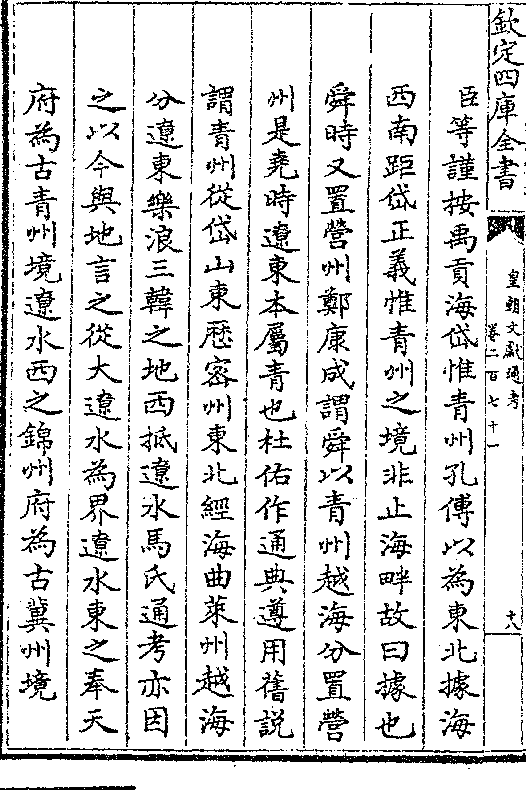 欽定四庫全書
皇朝文獻通考
卷二百七十一
臣等謹按禹貢海岱惟青州孔傳以為東北據海
西南距岱正義惟青州之境非止海畔故曰據也
舜時又置營州鄭康成謂舜以青州越海分置營
州是堯時遼東本屬青也杜佑作通典遵用舊説
謂青州從岱山東歴宻州東北經海曲萊州越海
分遼東樂浪三韓之地西抵遼水馬氏通考亦因
之以今輿地言之從大遼水為界遼水東之奉天
府為古青州境遼水西之錦州府為古冀州境